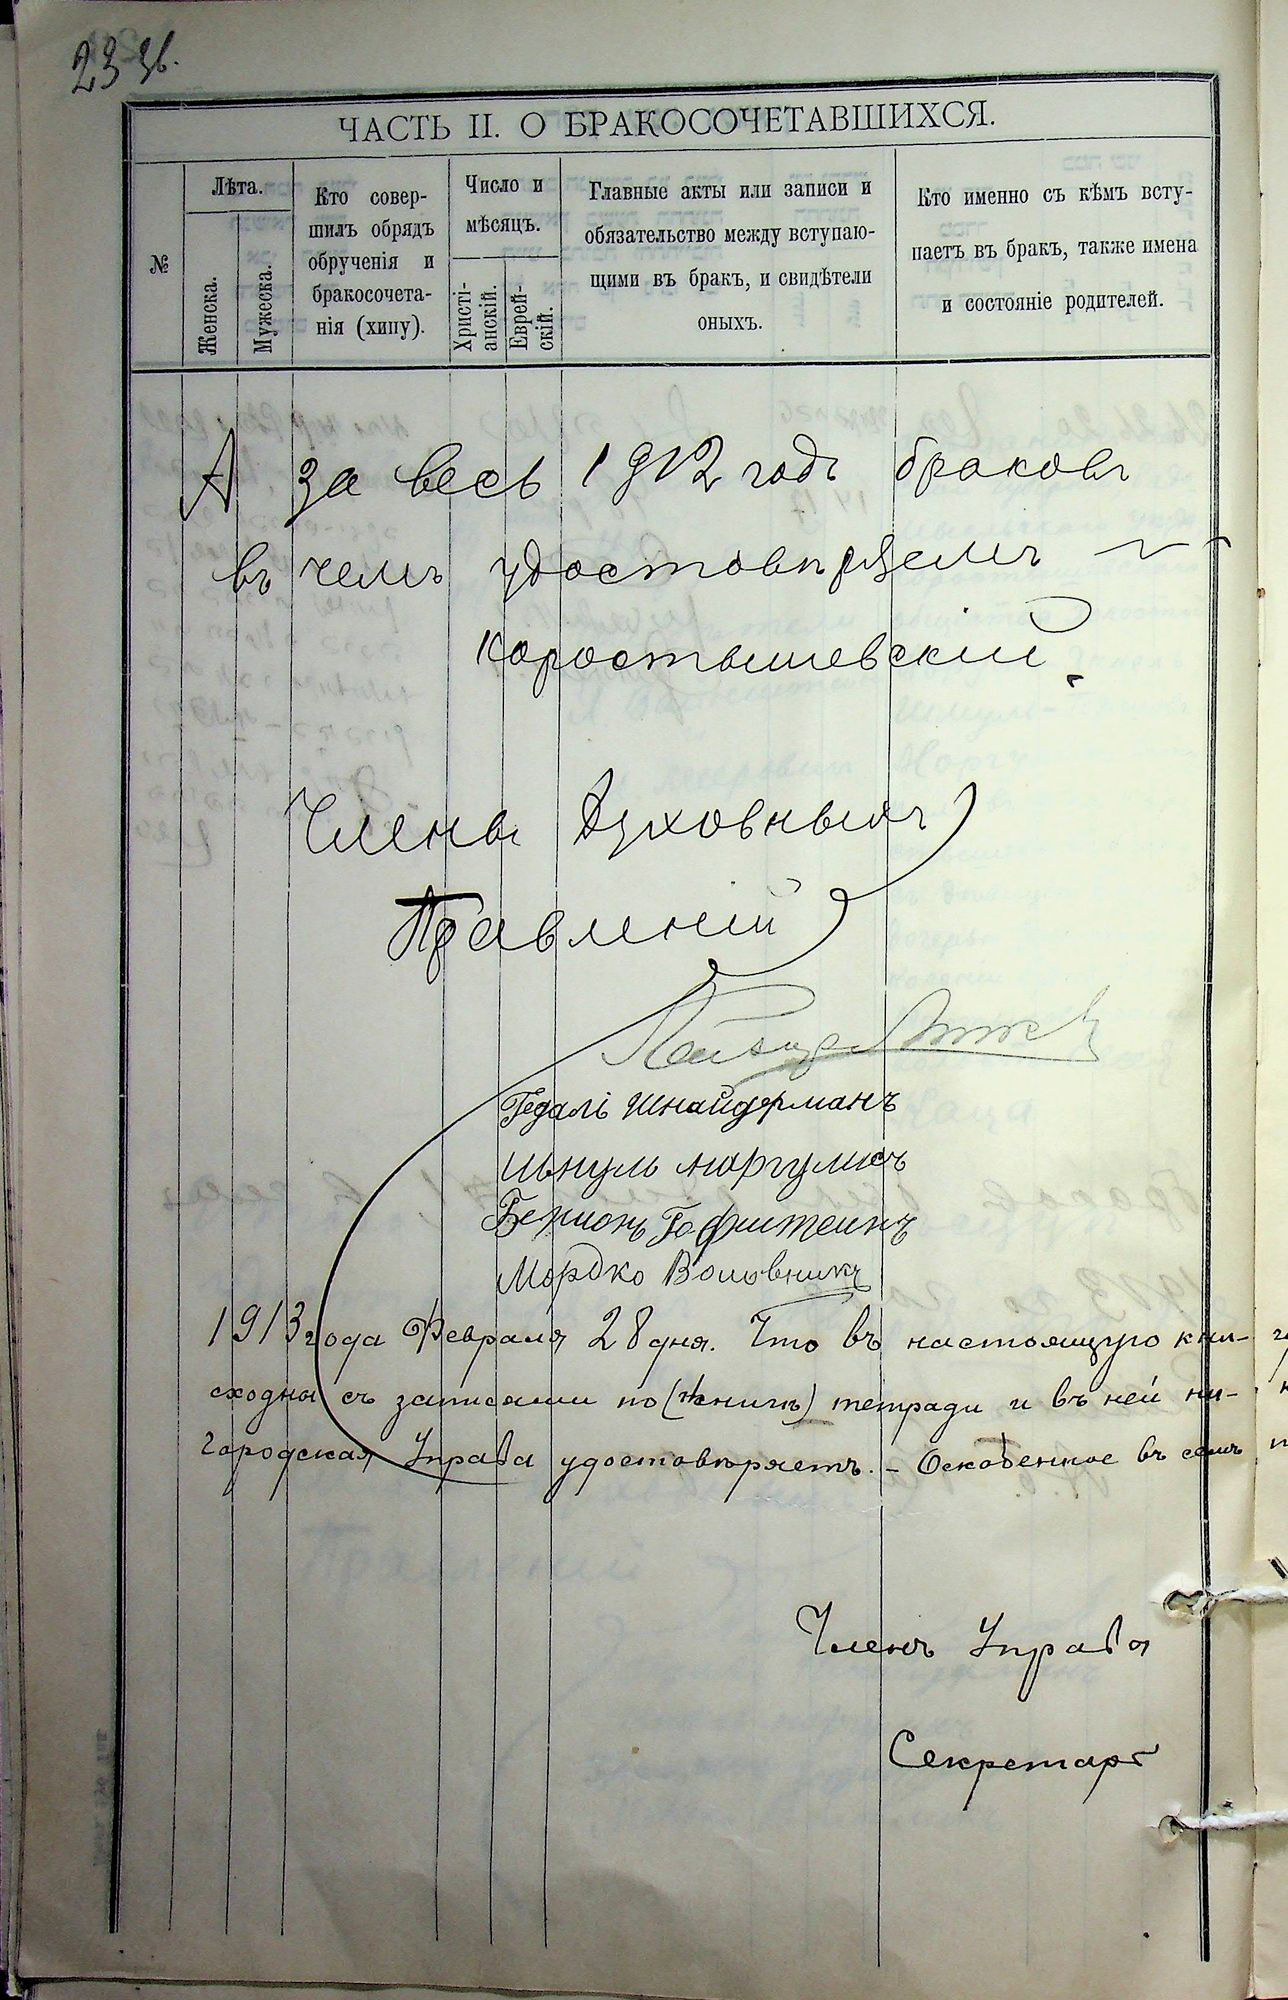 23 зв.
ЧАСТЬ II. О БРАКОСОЧЕТАВШИХСЯ.
№
Лѣта.
Женска.
Мужеска.
Кто совер-
шилъ обрядъ
обрученія и
бракосочета-
нія (хипу).
Число и
мѣсяцъ.
Христі-
анскій.
Еврей-
скій.
Главные акты или записи и
обязательство между вступаю-
щими въ бракъ, и свидѣтели
оныхъ.
Кто именно съ кѣмъ всту-
паетъ въ бракъ, также имена
и состояніе родителей.
А за весь 1912 годъ браковъ
въ чемъ удостовѣряемъ
Коростышевскій
Члены Духовныхъ
Правленій
Гедалі Шнайдерманъ
Шмуль Маргулисъ
Бенцион Гофштеинъ
Мордко Воловникъ
1913 года Февраля 28 дня. Что въ настоящую кни-
сходны съ записями по (книгѣ) тетради и въ ней ни-
Городская Управа удостовѣряетъ. - Оскобенное въ семъ
Членъ Управы
Секретарь